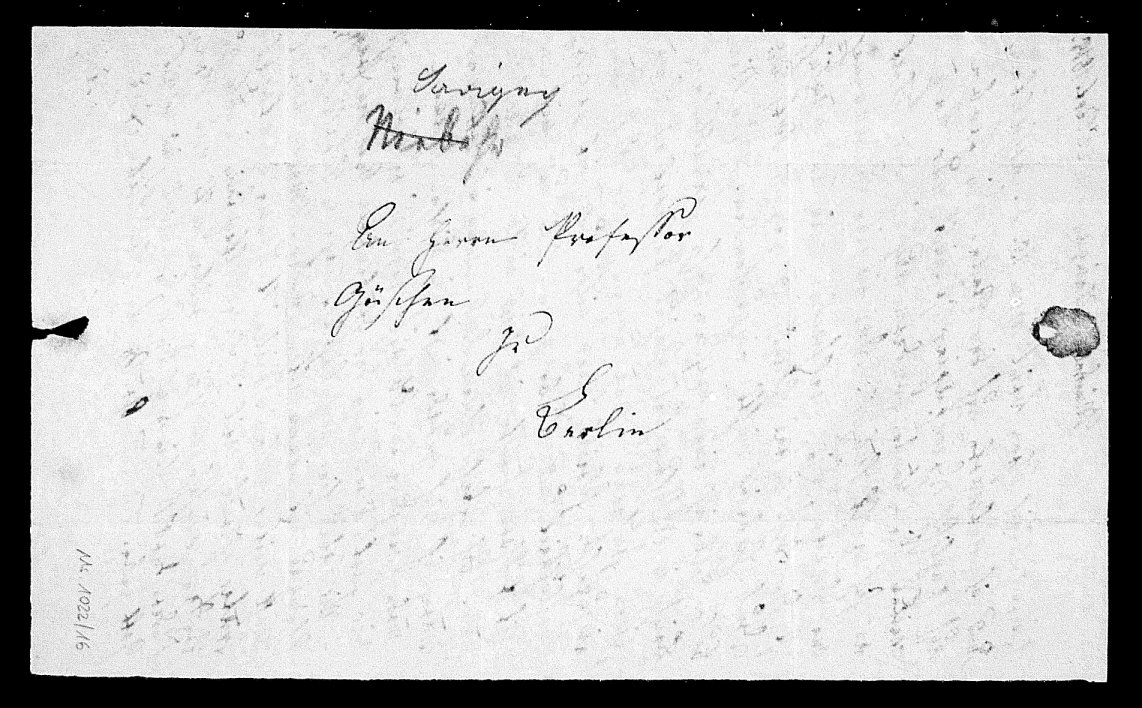 Savigny
Niebuhr
An Herrn Professor
Göschen
zu
Berlin
Ms 1022/16